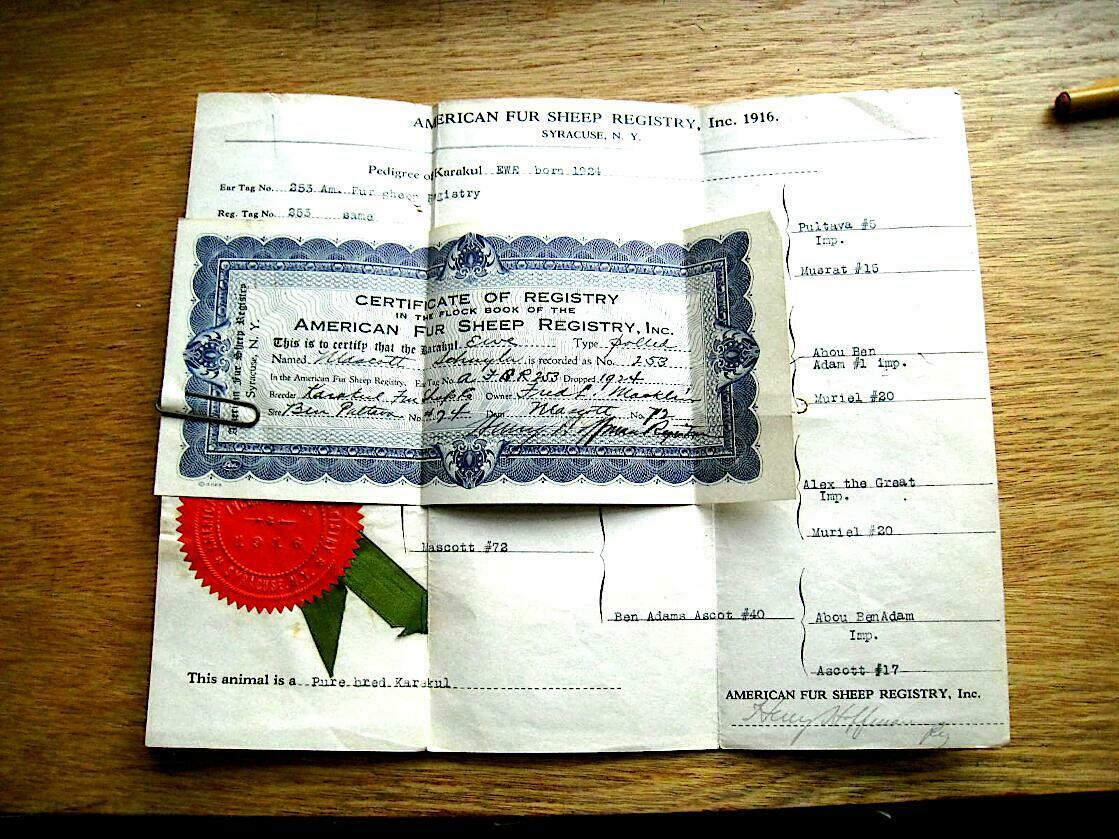 AMERICAN FUR SHEEP REGISTRY, Inc. 1916.
SYRACUSE, N. Y.
Pedigree of Karakul EWE born 1924
Ear Tag No. 253 Am. Fur sheep registry
Reg. Tag No. 253 same
Pultava #5
Imp.
Musrat #15
Abou Ben
Adam #1 imp.
Muriel #20
Alex the Great
Imp.
Muriel #20
Mascott #72
Ben Adams Ascot #40
Abou BenAdam
Imp.
Ascott #17
American Fur Sheep Registry
Syracuse, N. Y.
CERTIFICATE OF REGISTRY
IN THE FLOCK BOOK OF THE
AMERICAN FUR SHEEP REGISTRY, INC.
This is to certify that the Karakul Ewe Type polled
Named Mascott is recorded as No. 253
In the American Fur Sheep Registry, Ear Tag No. A. F. S. R 253 Dropped 1924
Breeder Karakul Fur Owner Fred L.
Sire Ben Pultava No. Dam Mascott No. 72
Henry
1916
SYRACUSE N.Y.
This animal is a Pure bred Karakul
AMERICAN FUR SHEEP REGISTRY, Inc.
Henry Hoffman